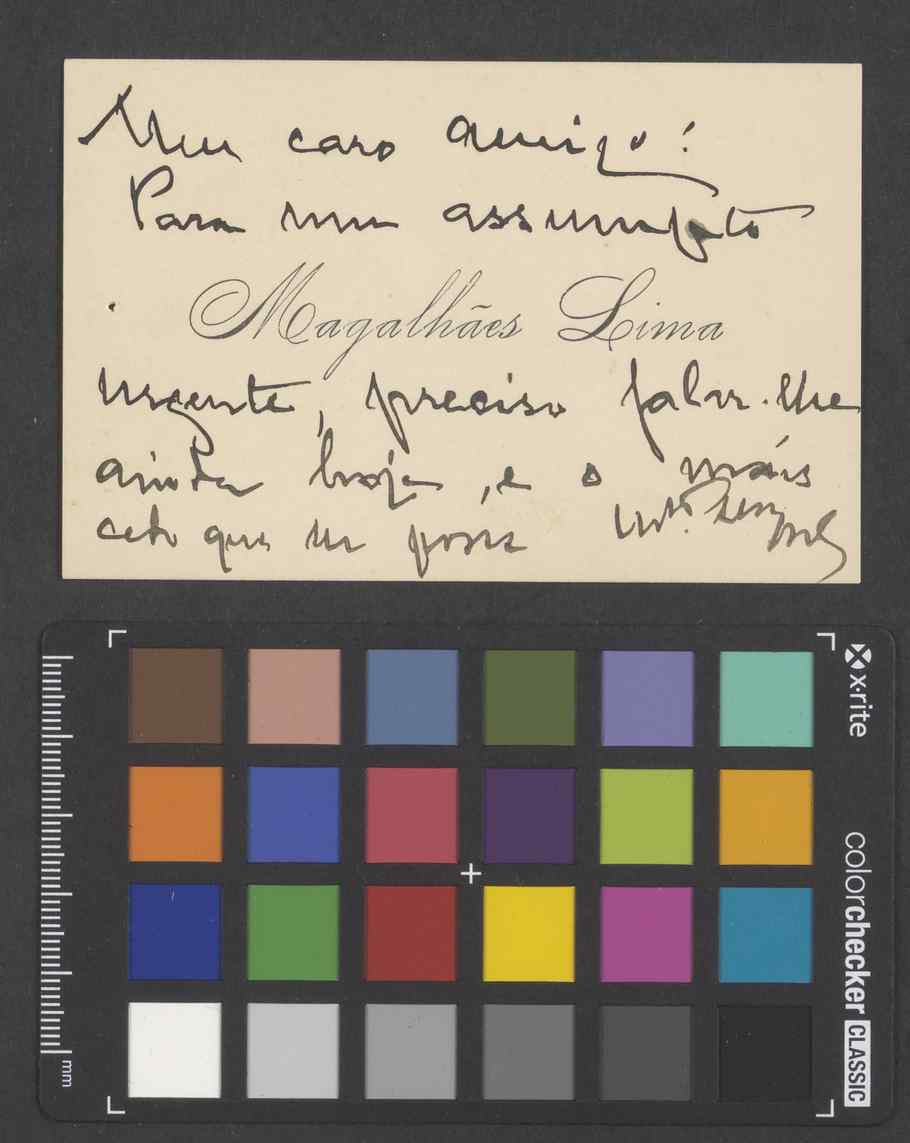 Meu caro amigo:
Para um assumpto
Magalhães Lima
urgente, preciso falar-lhe
ainda hoje, e o mais
cedo que se possa
x·rite
colorchecker CLASSIC
mm